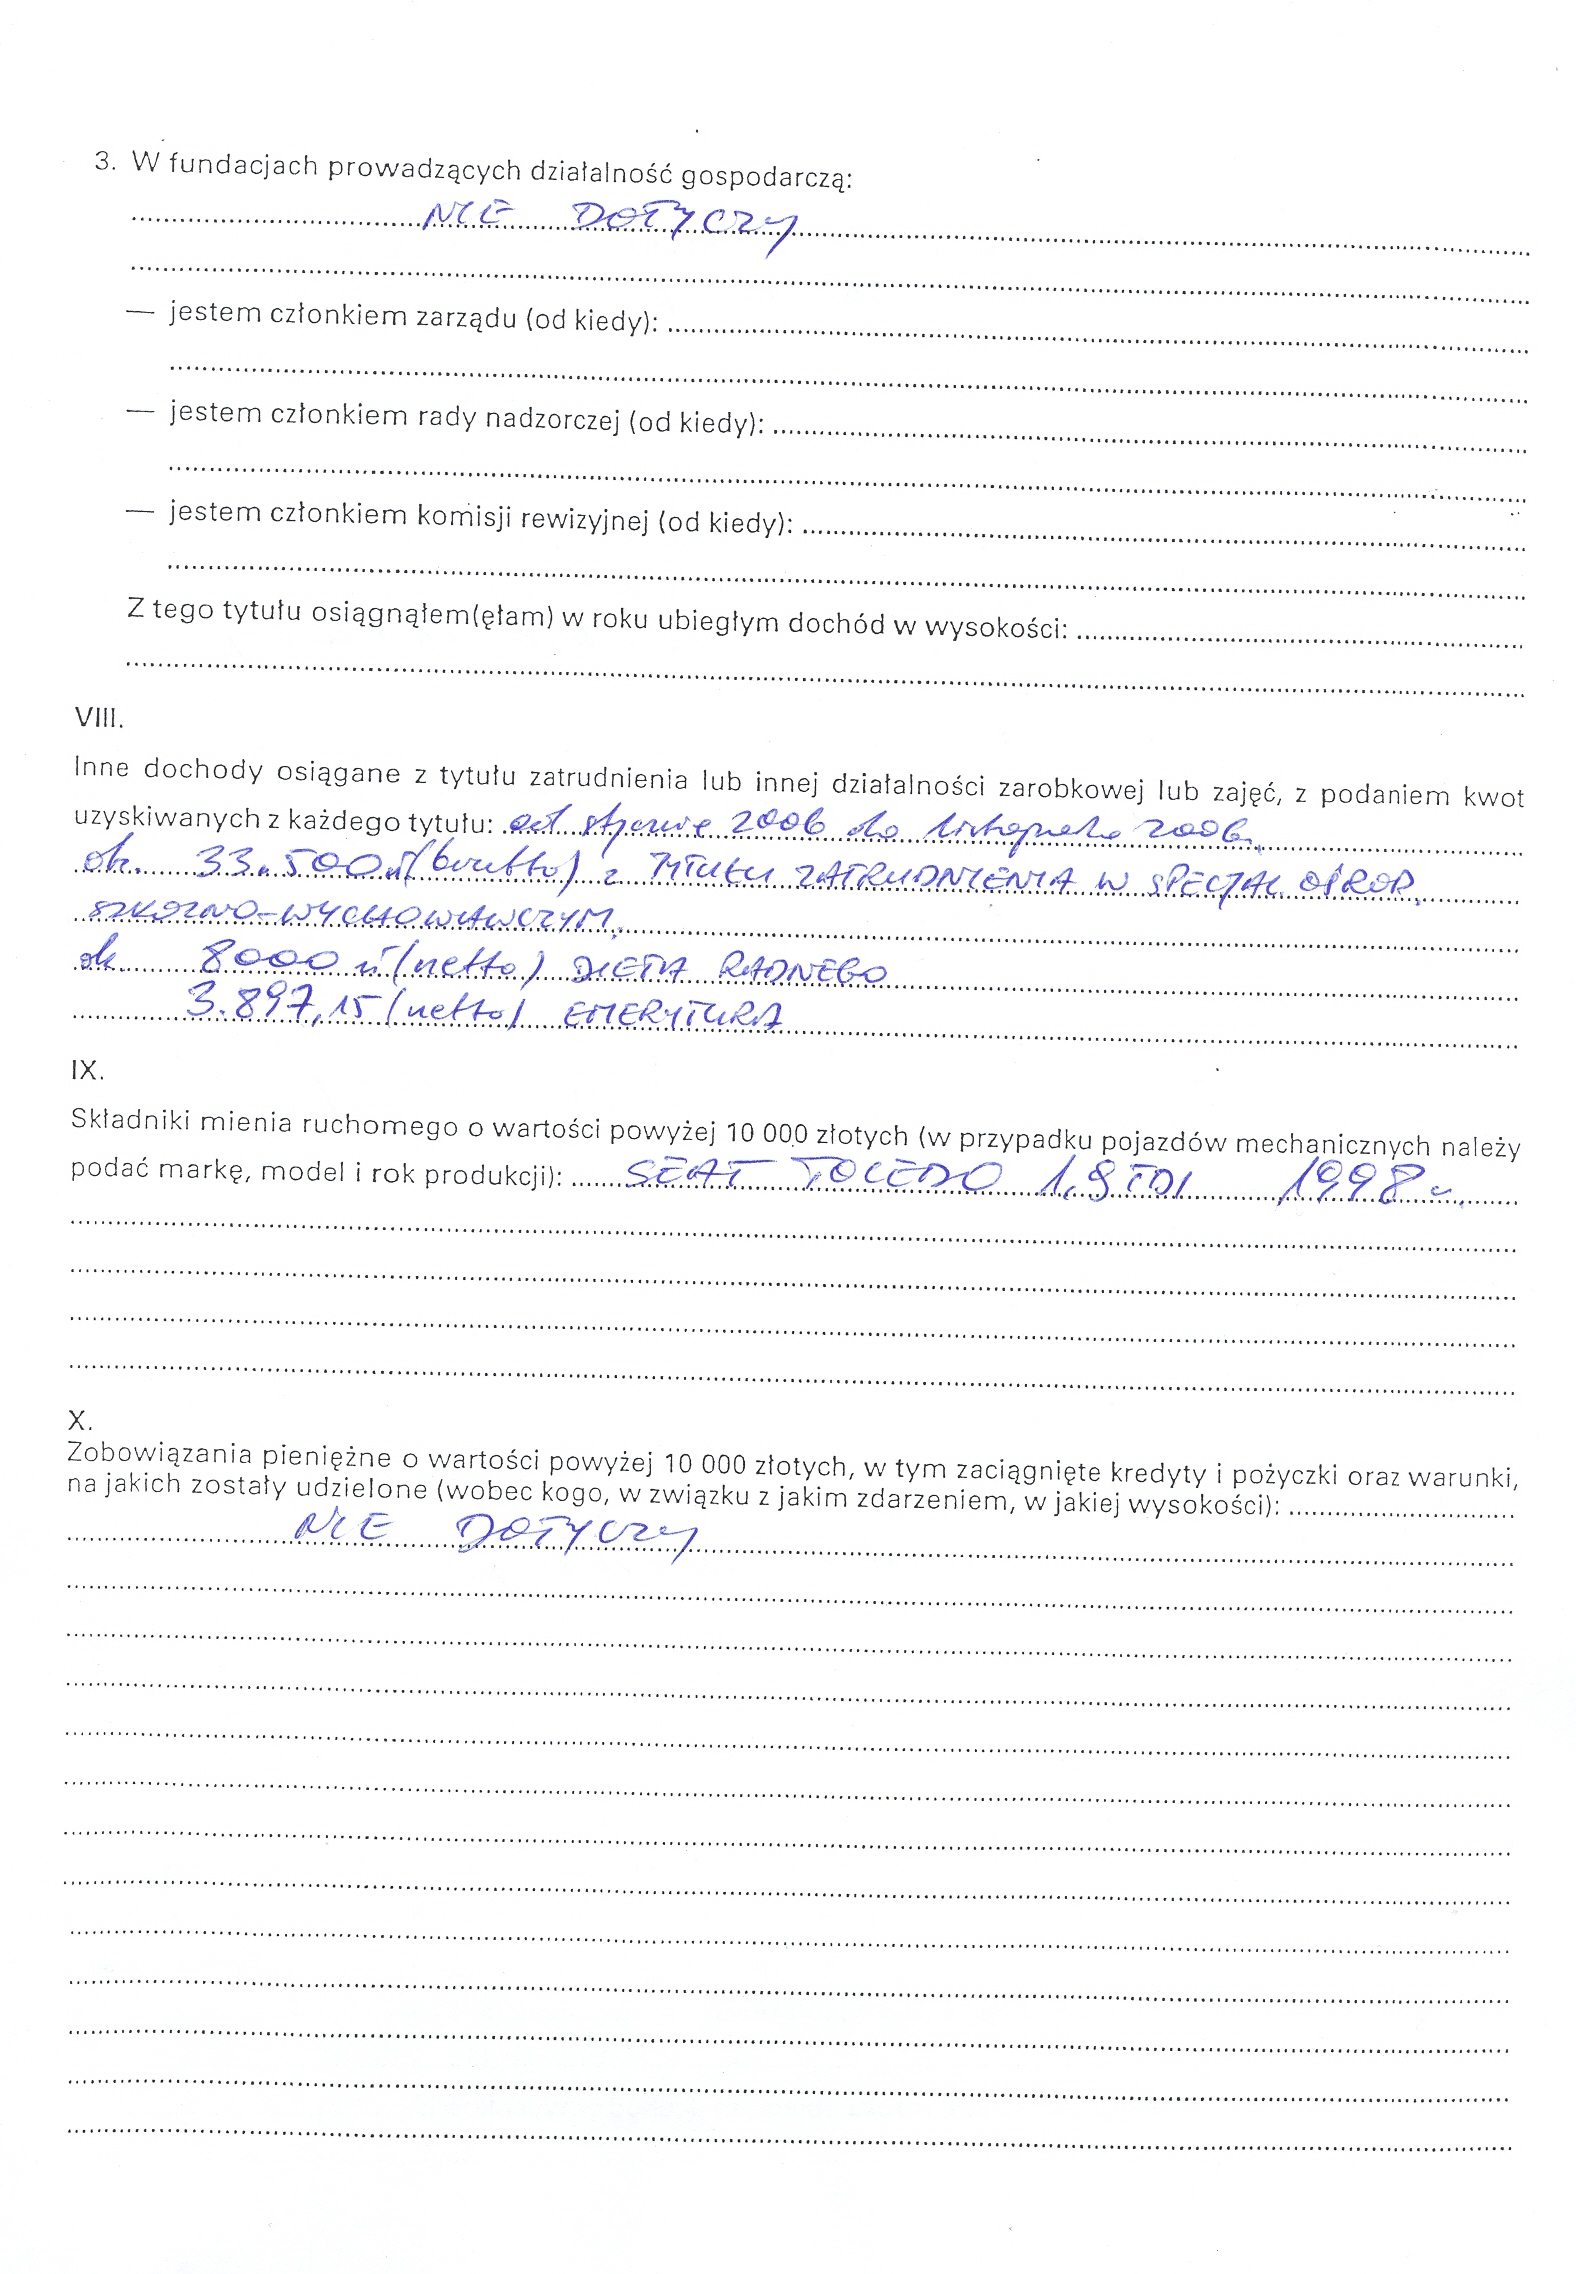 3. W fundacjach prowadzących działalność gospodarczą:
NIE DOTYCZY
— jestem członkiem zarządu (od kiedy):
— jestem członkiem rady nadzorczej (od kiedy):
— jestem członkiem komisji rewizyjnej (od kiedy):
Z tego tytułu osiągnąłem(ęłam) w roku ubiegłym dochód w wysokości:
VIII.
Inne dochody osiągane z tytułu zatrudnienia lub innej działalności zarobkowej lub zajęć, z podaniem kwot
uzyskiwanych z każdego tytułu: od stycznia 2006 do listopada 2006r.
ok. 33.500 zł (brutto) z TYTUŁU ZATRUDNIENIA W SPECJAL. OŚROD.
SZKOLNO-WYCHOWAWCZYM.
ok 8000 zł (netto) DIETA RADNEGO
3.897,15 (netto) EMERYTURA
IX.
Składniki mienia ruchomego o wartości powyżej 10 000 złotych (w przypadku pojazdów mechanicznych należy
podać markę, model i rok produkcji): SEAT TOLEDO 1,9 TDI 1998 r.
X.
Zobowiązania pieniężne o wartości powyżej 10 000 złotych, w tym zaciągnięte kredyty i pożyczki oraz warunki,
na jakich zostały udzielone (wobec kogo, w związku z jakim zdarzeniem, w jakiej wysokości):
NIE DOTYCZY